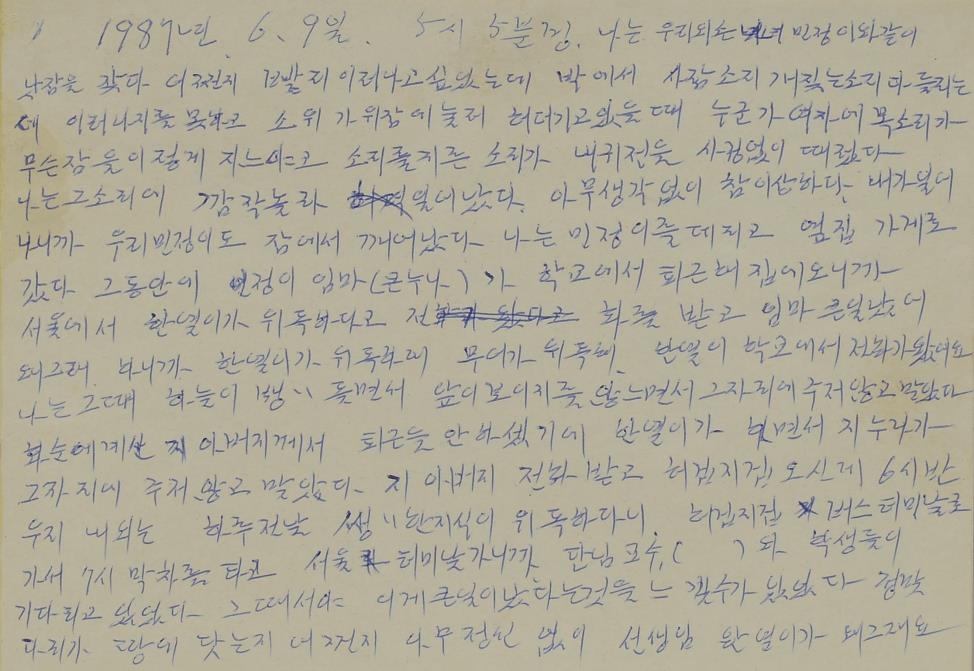 1987년 6. 9일. 5시 5분경. 나는 우리외손녀 민정이와같이
낮잠을 잤다 어쩐지 빨리 이러나고싶었는데 밖에서 사람소리 개짖는소리 다 들리는
데 이러나지를 못하고 소위 가위잠에눌려 허더기고있을때 누군가 여자에 목소리가
무슨잠을이렇게 자느냐고 소리를지른 소리가 내귀전을 사정없이 때렸다
나는그소리에 깜작놀라 일어났다. 아무생각없이 참이상하다. 내가일어
나니까 우리민정이도 잠에서 깨어났다 나는 민정이를데리고 옆집 가게로
갔다 그동안에 민정이 엄마(큰누나)가 학교에서 퇴근해 집에오니까
서울에서 한열이가 위독하다고 전화를 받고 엄마 큰일났어
왜그래 하니까 한열이가 위독하데 무어가 위독해 한열이 학교에서 전화가왔어요
나는 그때 하늘이 뱅〃 돌면서 앞이보이지를 않느면서 그자리에주저앉고말았다
화순에계신 아버지께서 퇴근을 안하셨기에 한열이가 하면서 지누나가
그자리에 주저앉고 말았다. 지 아버지 전화받고 허겁지겁 오신게 6시반
우리 내외는 하루전날 쌩〃한자식이 위독하다니 허겁지겁 버스터미날로
가서 7시 막차를 타고 서울 터미날가니까 담임 교수,( )와 학생들이
기다리고 있었다 그때서야 이게큰일이났다는것을 느낄수가 있었다 정말
다리가 땅에 닷는지 어쩐지 아무정신 없이 선생님 한열이가 왜그래요